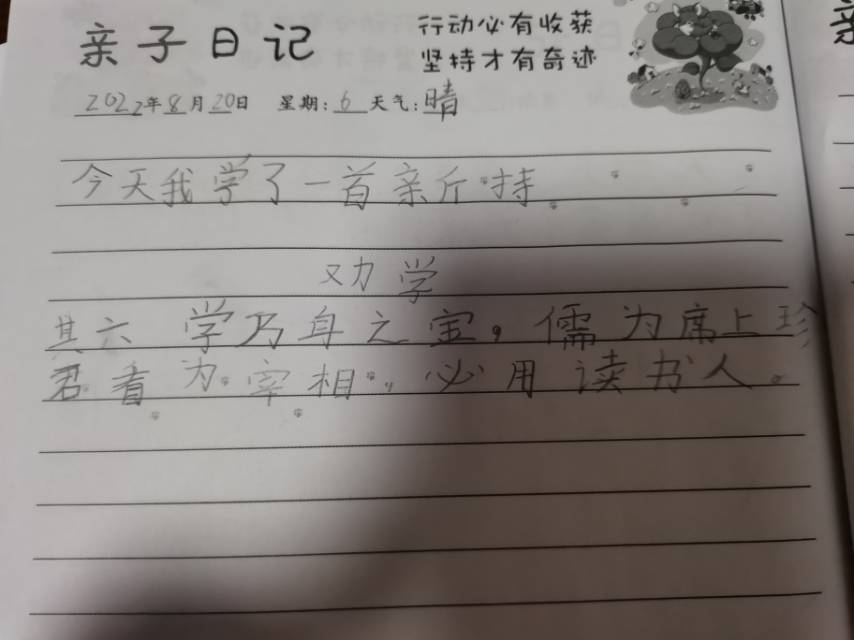 亲子日记
行动必有收获
坚持才有奇迹
2022年8月20日 星期:6 天气:晴
今天我学了一首亲斤持
劝学
其六 学乃身之宝，儒为席上珍
君看为宰相，必用读书人。